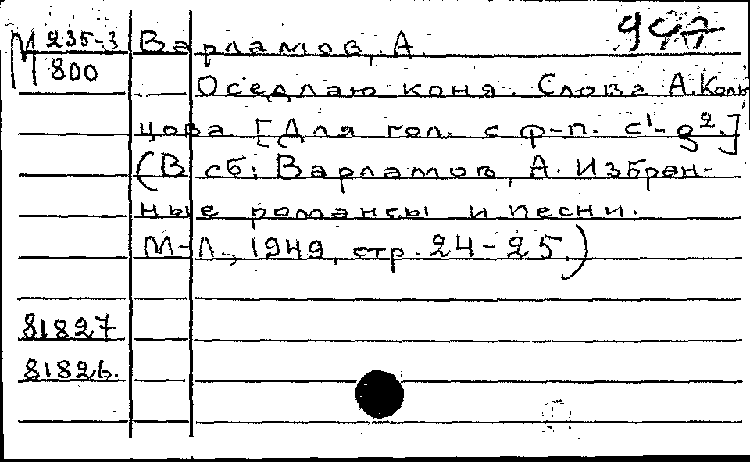 М 235-3
800
Варламов, А.
Оседлаю коня. Слова А. Коль
цова. [Для гол. с ф-п. c¹-g².]
(В сб: Варламов, А. Избран-
ные романсы и песни.
М-Л., 1949, стр. 24-25.)
81827
81826.